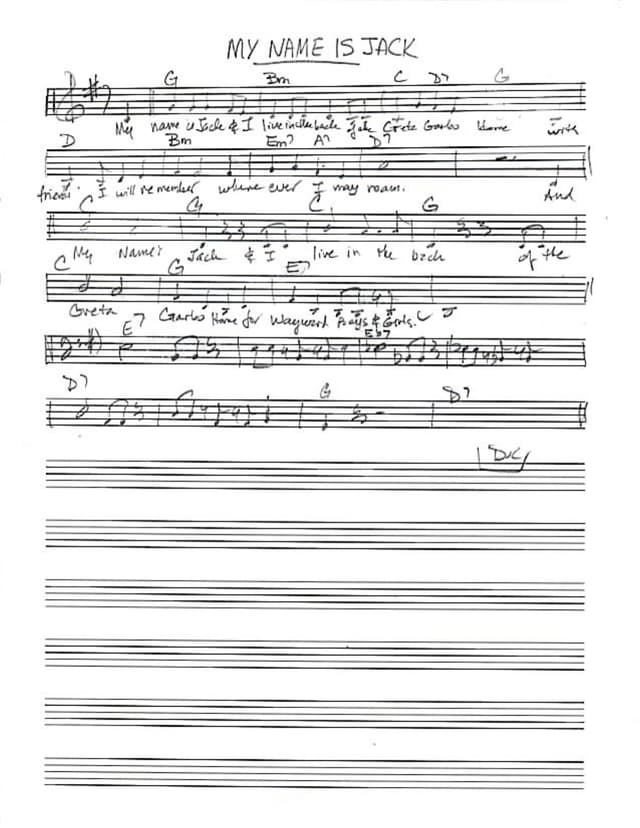 MY NAME IS JACK
G Bm C D7 G
My name is Jack & I live in the back Greta Garbo Home with
D Bm Em7 A7 D7
friends I will remember where ever I may roam. And
C G C G
My Name's Jack & I live in the back of the
C G E7
Greta Garbo Home for Wayward Boys & Girls.
E7 Eb7
D7 G D7
D.C.